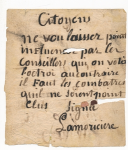 Citoyens
ne vous laisser point
influencer par les
Conseillers qui on voté
l'octroi au contraire
il faut les combattre
qui ne soient point
Elus
Signé
Lamoricière